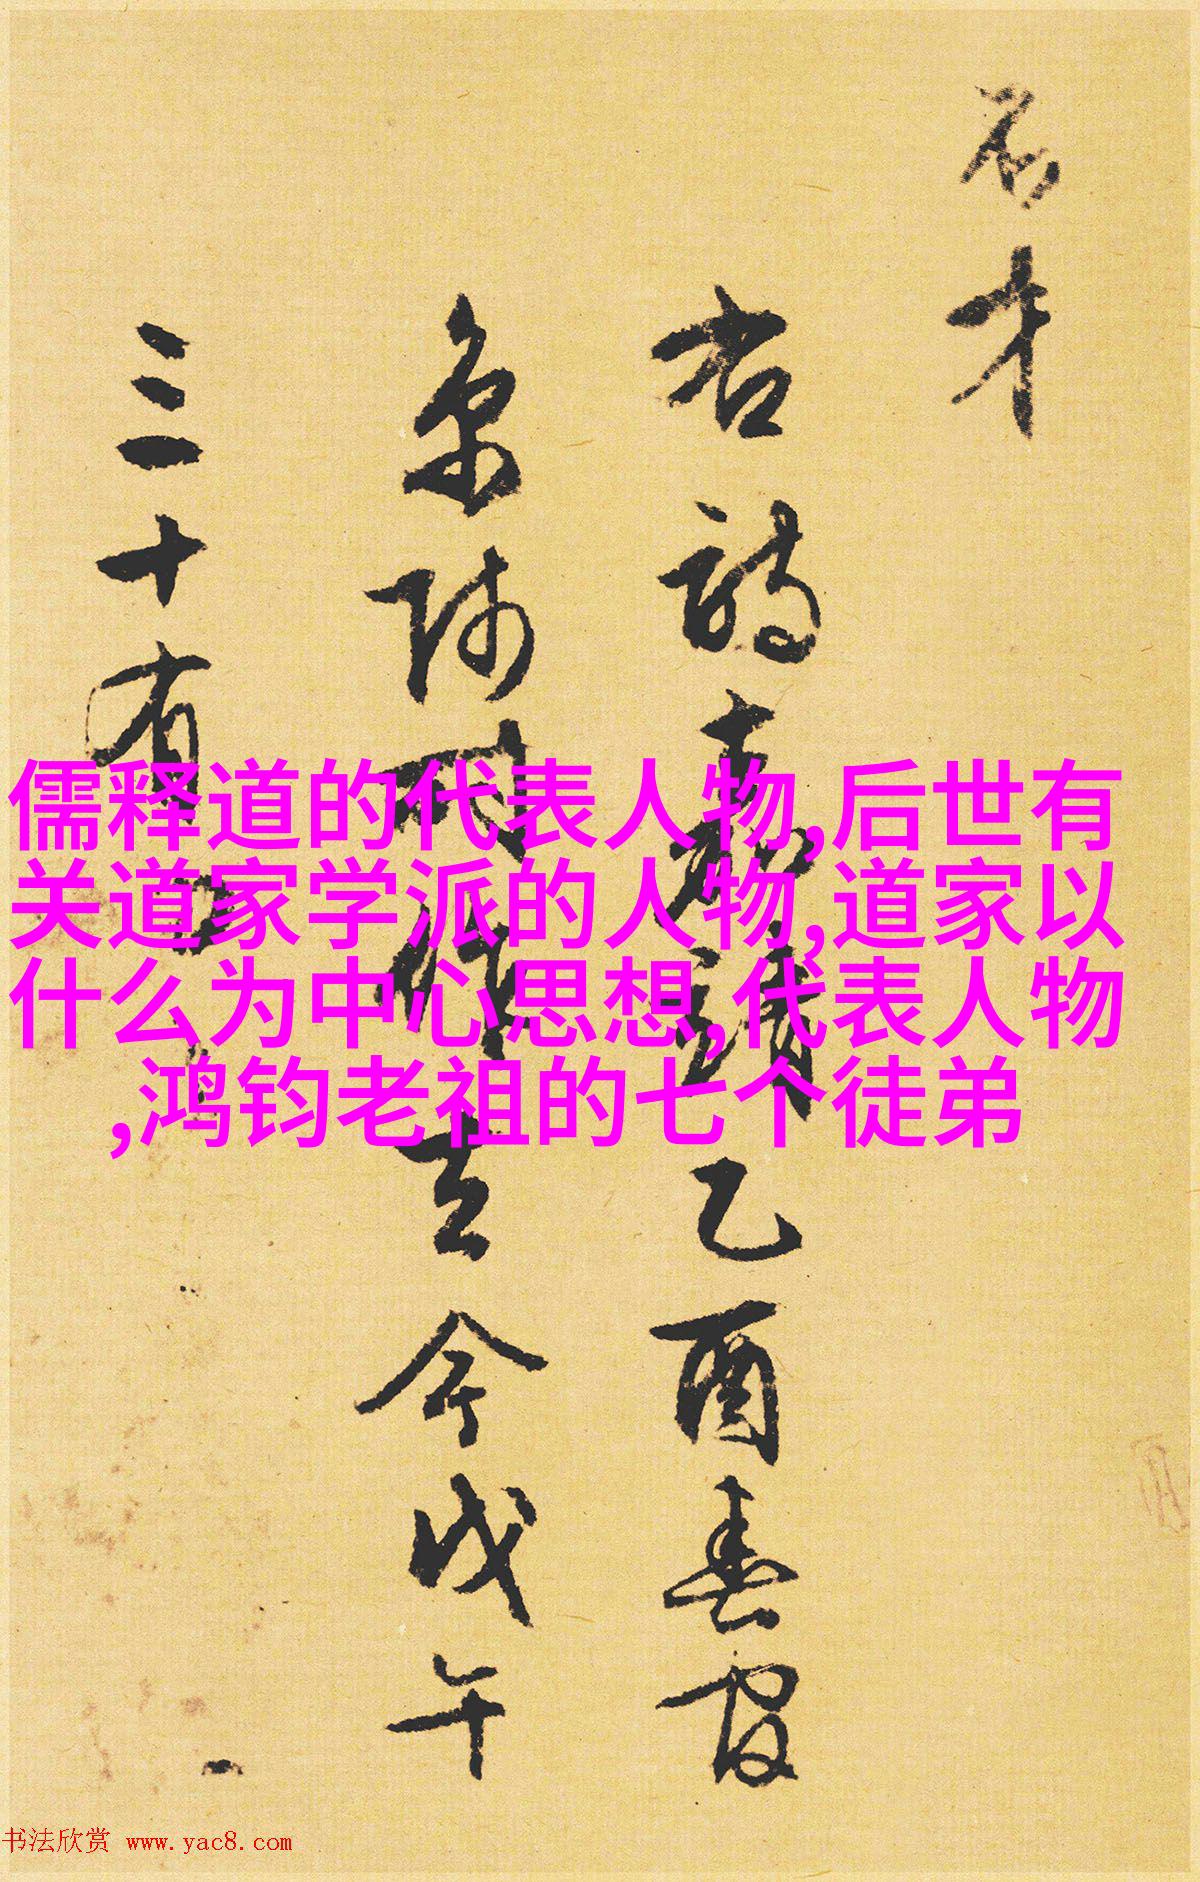 石才
右诗嘉靖乙酉春寓
京师同作去今戊午
三十有
儒释道的代表人物,后世有
关道家学派的人物,道家以
什么为中心思想,代表人物
,鸿钧老祖的七个徒弟
书法欣赏 www.yac8.com